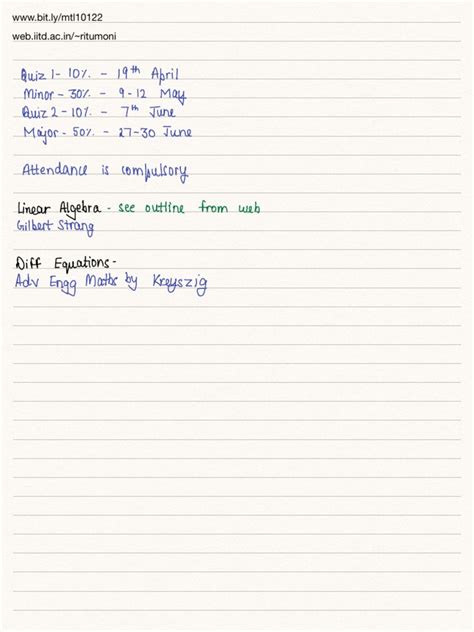 www.bit.ly/mtl10122
web.iitd.ac.in/~ritumoni
Quiz 1 - 10% - 19th April
Minor - 30% - 9-12 May
Quiz 2 - 10% - 7th June
Major - 50% - 27-30 June
Attendance is compulsory
Linear Algebra - see outline from web
Gilbert Strang
Diff Equations -
Adv Engg Maths by Kreyszig